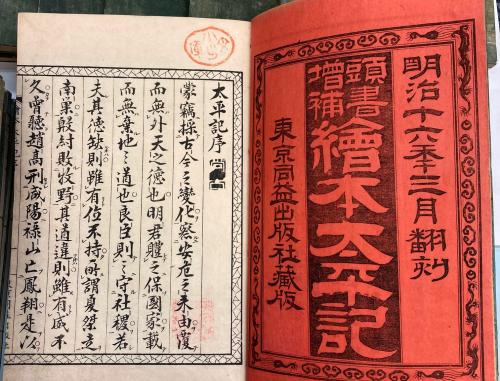 明治十六年三月翻刻
頭書
增補
繪本太平記
東京同益出版社藏版
太平記序
蒙竊採古今之變化察安危之来由覆
而無外天之德也明君軆之保國家載
而無棄地之道也良臣則之守社稷若
夫其德缺則雖有位不持所謂夏桀走
南巣殷紂敗牧野其道違則雖有威不
久曾聽趙高刑咸陽禄山亡鳳翔是以